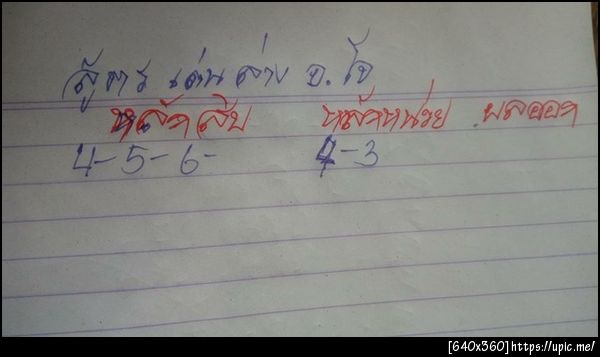 สูตร เด่นล่าง อ.โจ
หลักสิบ หลักหน่วย ผลออก
4-5-6- 4-3
[640x360]https://upic.me/